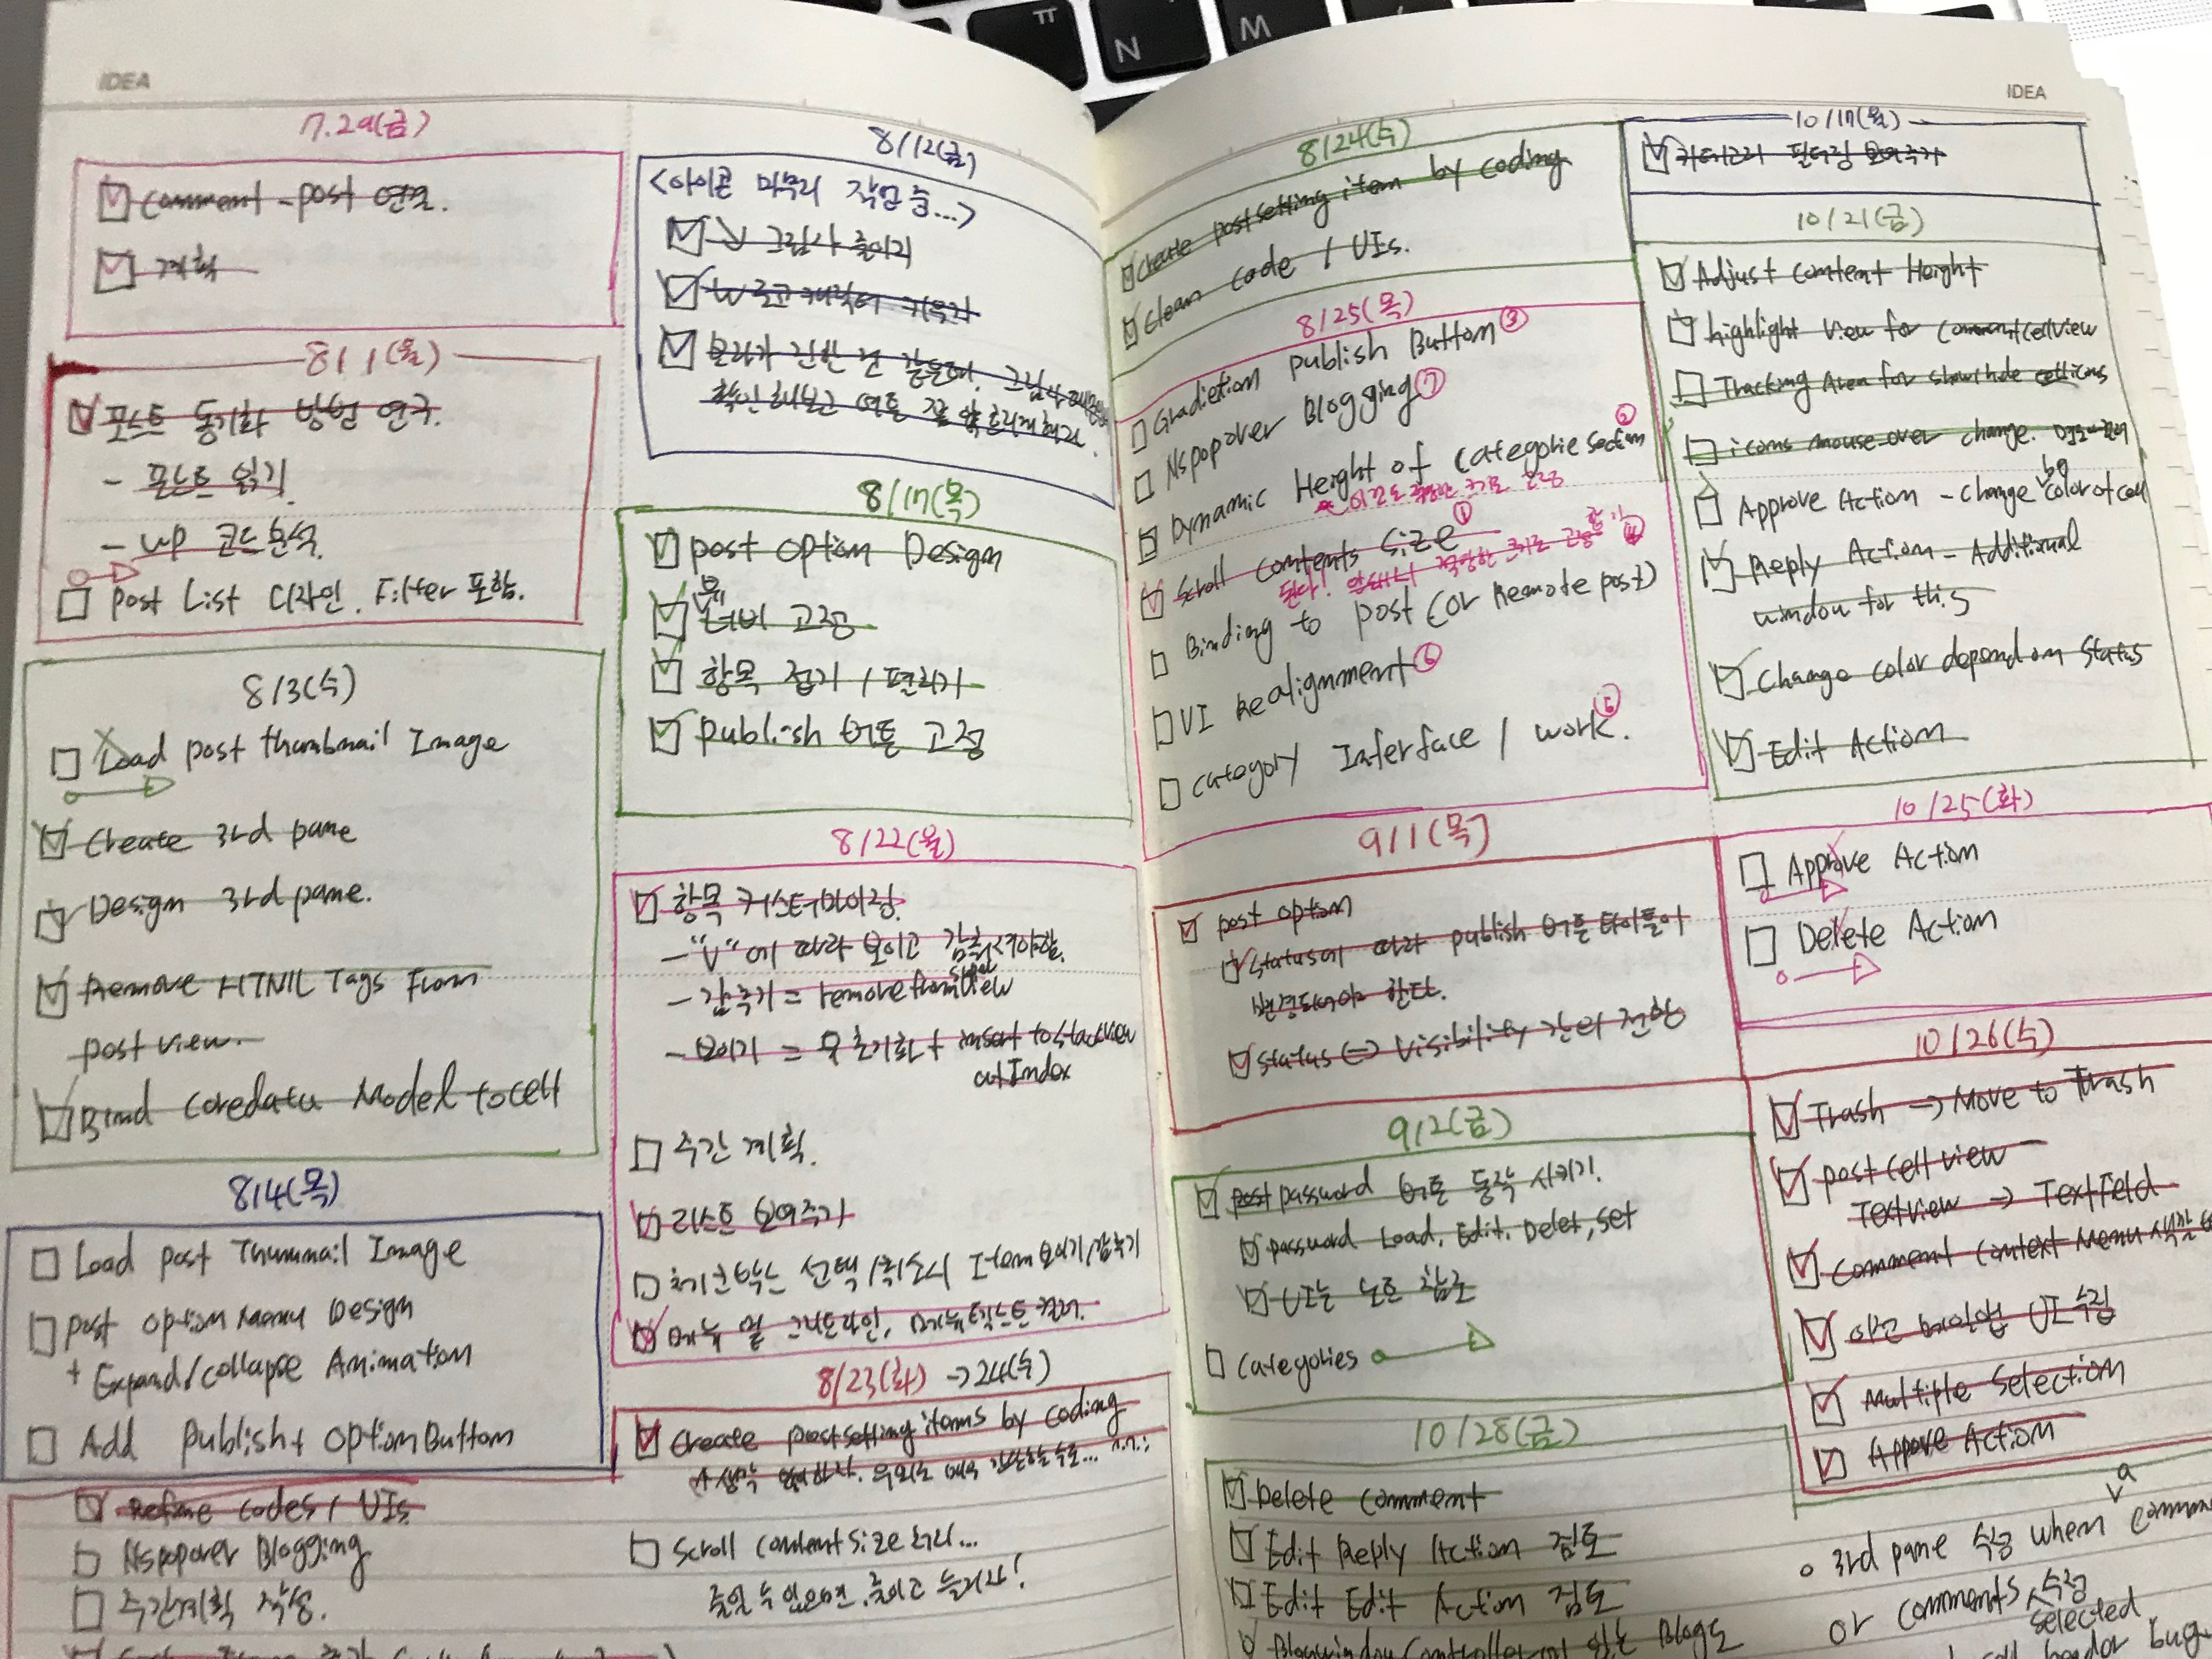 ㅠ
N
M
IDEA
7.29(금)
Comment - post 연결.
계획
8/1(월)
포스트 동기화 방법 연구.
- 포스트 읽기
- WP 코드분석.
Post List 디자인. Filter 포함.
8/3(수)
Load post thumbnail Image
Create 3rd pane
Design 3rd pane.
Remove HTML Tags From
post view.
Bind Coredata Model to cell
8/4(목)
Load post Thumnail Image
Post Option Menu Design
+ Expand/collapse Animation
Add Publish + Option Button
Refine codes / UIs
Nspopover Blogging
주간계획 작성.
8/12(금)
<아이콘 마무리 작업 중...>
그림자 줄이기
W 로고 키우기
8/17(목)
Post Option Design
뷰 너비 고정
항목 접기 / 펼치기
Publish 버튼 고정
8/22(월)
항목 커스터마이징.
- "V"에 따라 보이고 감춰져야함.
- 감추기 = remove from superview
- 보이기 = 뷰 초기화 + insert to stackview
at Index
주간 계획.
리스트 보여주기
체크박스 선택/취소시 Item 보이기/감추기
메뉴 밑 그리드라인, 메뉴 텍스트 컬러.
8/23(화) -> 24(수)
Create postsetting items by coding
Scroll content size 처리...
줄일 수 있으면, 줄이고 늘리자!
IDEA
8/24(수)
Create postsetting item by coding
Clean code / UIs.
8/25(목)
Gradietion Publish Button ③
Nspopover Blogging ⑦
Dynamic Height of categorie section ②
Scroll contents size ①
Binding to post (or Remote post) ④
UI Realignment ⑥
Category Interface / work. ⑤
9/1(목)
post option
Status에 따라 publish 버튼 타이틀이
변경되어야 한다.
Status <=> Visibility 간의 전환
9/2(금)
post password 버튼 동작 시키기.
password Load, Edit, Delet, set
UI는 노트 참조
Categories
10/28(금)
Delete comment
Edit Reply Action 검토
Edit Edit Action 검토
10/17(월)
카테고리 필터링 보여주기
10/21(금)
Adjust content Height
highlight view for commentcellview
Tracking Area for show/hide cell icons
icons mouse over change.
Approve Action - change bg color of cell
Reply Action - Additional
window for this
Change color depend on status
Edit Action
10/25(화)
Approve Action
Delete Action
10/26(수)
Trash -> Move to Trash
Post cell view
Textview -> TextField
Comment Context Menu
UI 수정
Multiple Selection
Appove Action
3rd pane 수정 when a
or comments 수정
selected
bug